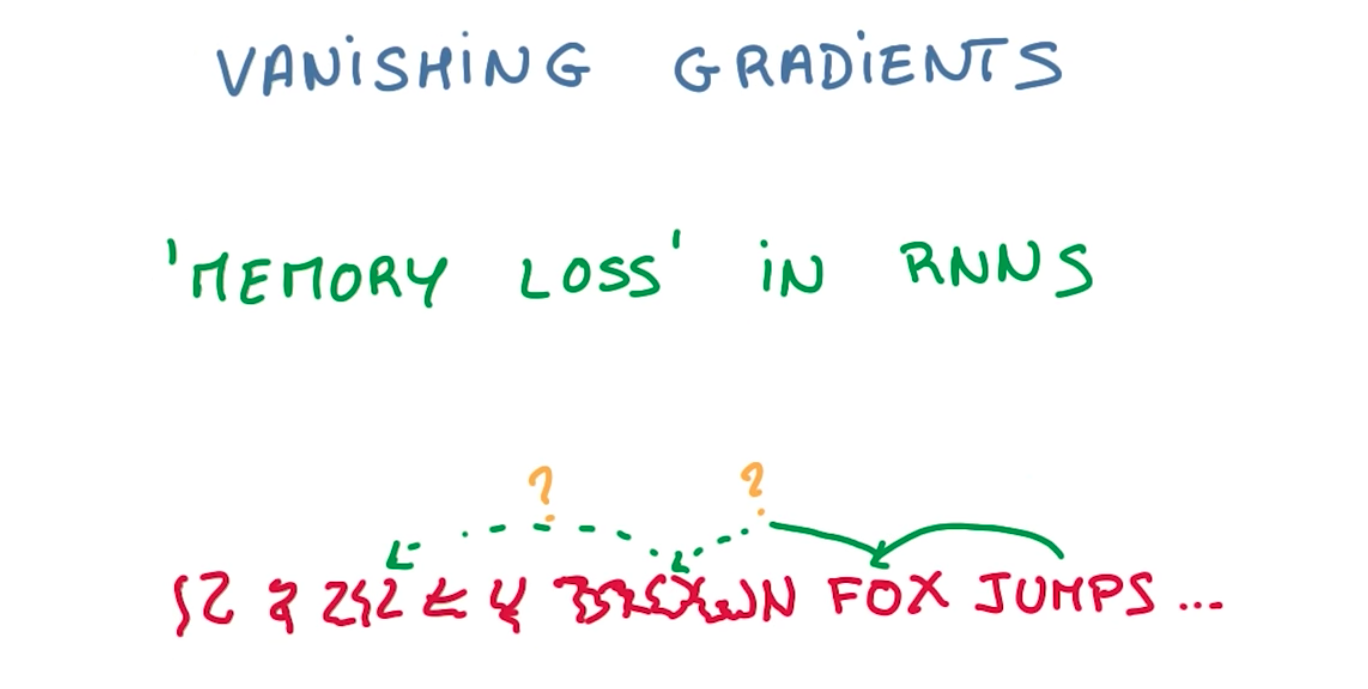 VANISHING GRADIENTS
'MEMORY LOSS' IN RNNS
? ?
BROWN FOX JUMPS ...